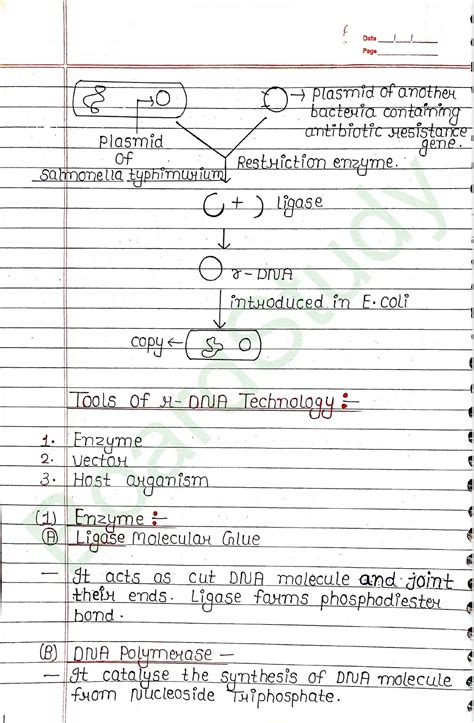 Date __/__/__
Page
→ plasmid of another
bacteria containing
antibiotic resistance
gene.
plasmid
of
salmonella typhimurium
Restriction enzyme.
+ ligase
r-DNA
introduced in E.coli
copy ←
Tools of r-DNA Technology :-
1. Enzyme
2. Vector
3. Host organism
(1) Enzyme :-
(A) Ligase Molecular Glue
— It acts as cut DNA molecule and joint
their ends. Ligase forms phosphodiester
bond.
(B) DNA Polymerase —
— It catalyse the synthesis of DNA molecule
from Nucleoside Triphosphate.
BoardStudy